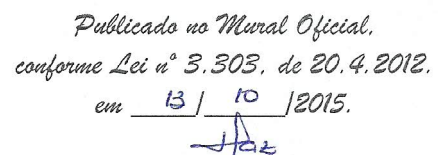 Publicado no Mural Oficial,
conforme Lei nº 3.303, de 20.4.2012.
em 13/10/2015.